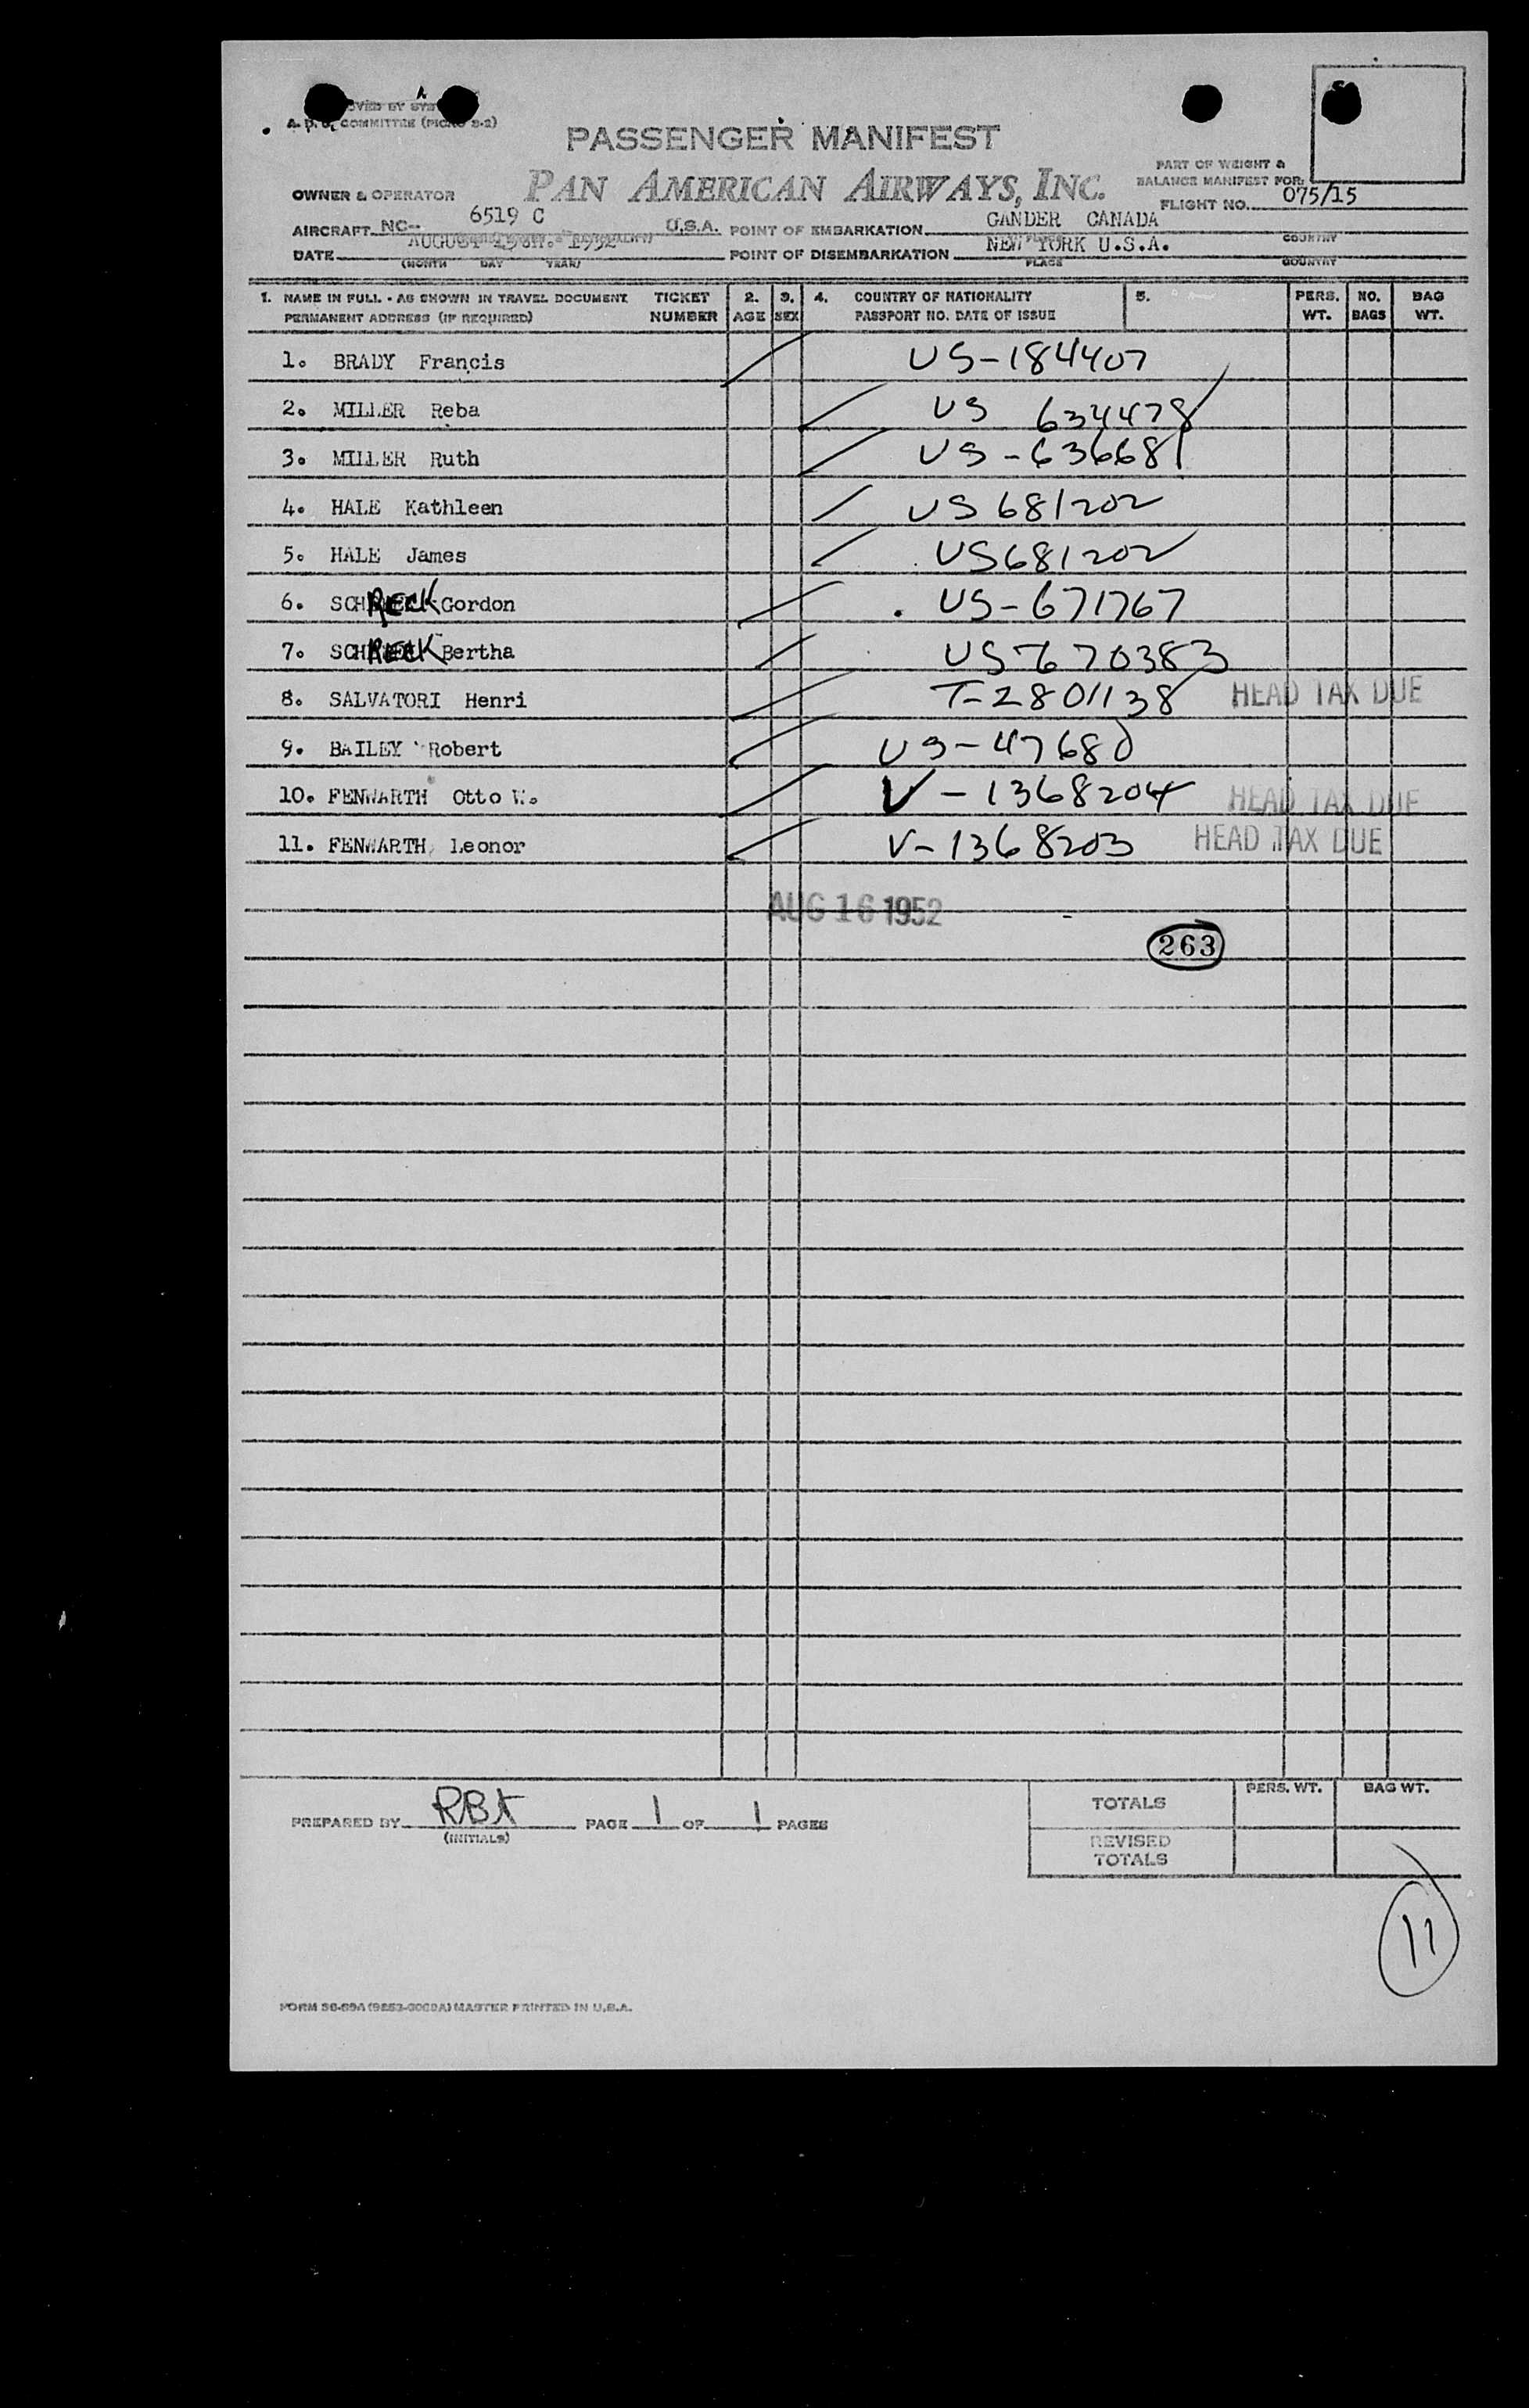 A. D. S. COMMITTEE
PASSENGER MANIFEST
PAN AMERICAN AIRWAYS, INC.
PART OF WEIGHT &
BALANCE MANIFEST FOR:
OWNER & OPERATOR
FLIGHT NO. 075/15
AIRCRAFT NC-- 6519 C U.S.A. POINT OF EMBARKATION GANDER CANADA
COUNTRY
DATE AUGUST 15th. 1952 POINT OF DISEMBARKATION NEW YORK U.S.A.
(MONTH DAY YEAR) PLACE COUNTRY
1. NAME IN FULL - AS SHOWN IN TRAVEL DOCUMENT TICKET 2. 3. 4. COUNTRY OF NATIONALITY 5. PERS. NO. BAG
PERMANENT ADDRESS (IF REQUIRED) NUMBER AGE SEX PASSPORT NO. DATE OF ISSUE WT. BAGS WT.
1. BRADY Francis US-184407
2. MILLER Reba US 634478
3. MILLER Ruth US-636681
4. HALE Kathleen US 681202
5. HALE James US681202
6. SCHRECK Gordon US-671767
7. SCHRECK Bertha US-670383
8. SALVATORI Henri T-2801138 HEAD TAX DUE
9. BAILEY Robert US-47680
10. FENWARTH Otto W. V-1368204 HEAD TAX DUE
11. FENWARTH Leonor V-1368203 HEAD TAX DUE
AUG 16 1952
263
PERS. WT. BAG WT.
TOTALS
PREPARED BY RBT PAGE 1 OF 1 PAGES
(INITIALS)
REVISED
TOTALS
11
MASTER PRINTED IN U.S.A.